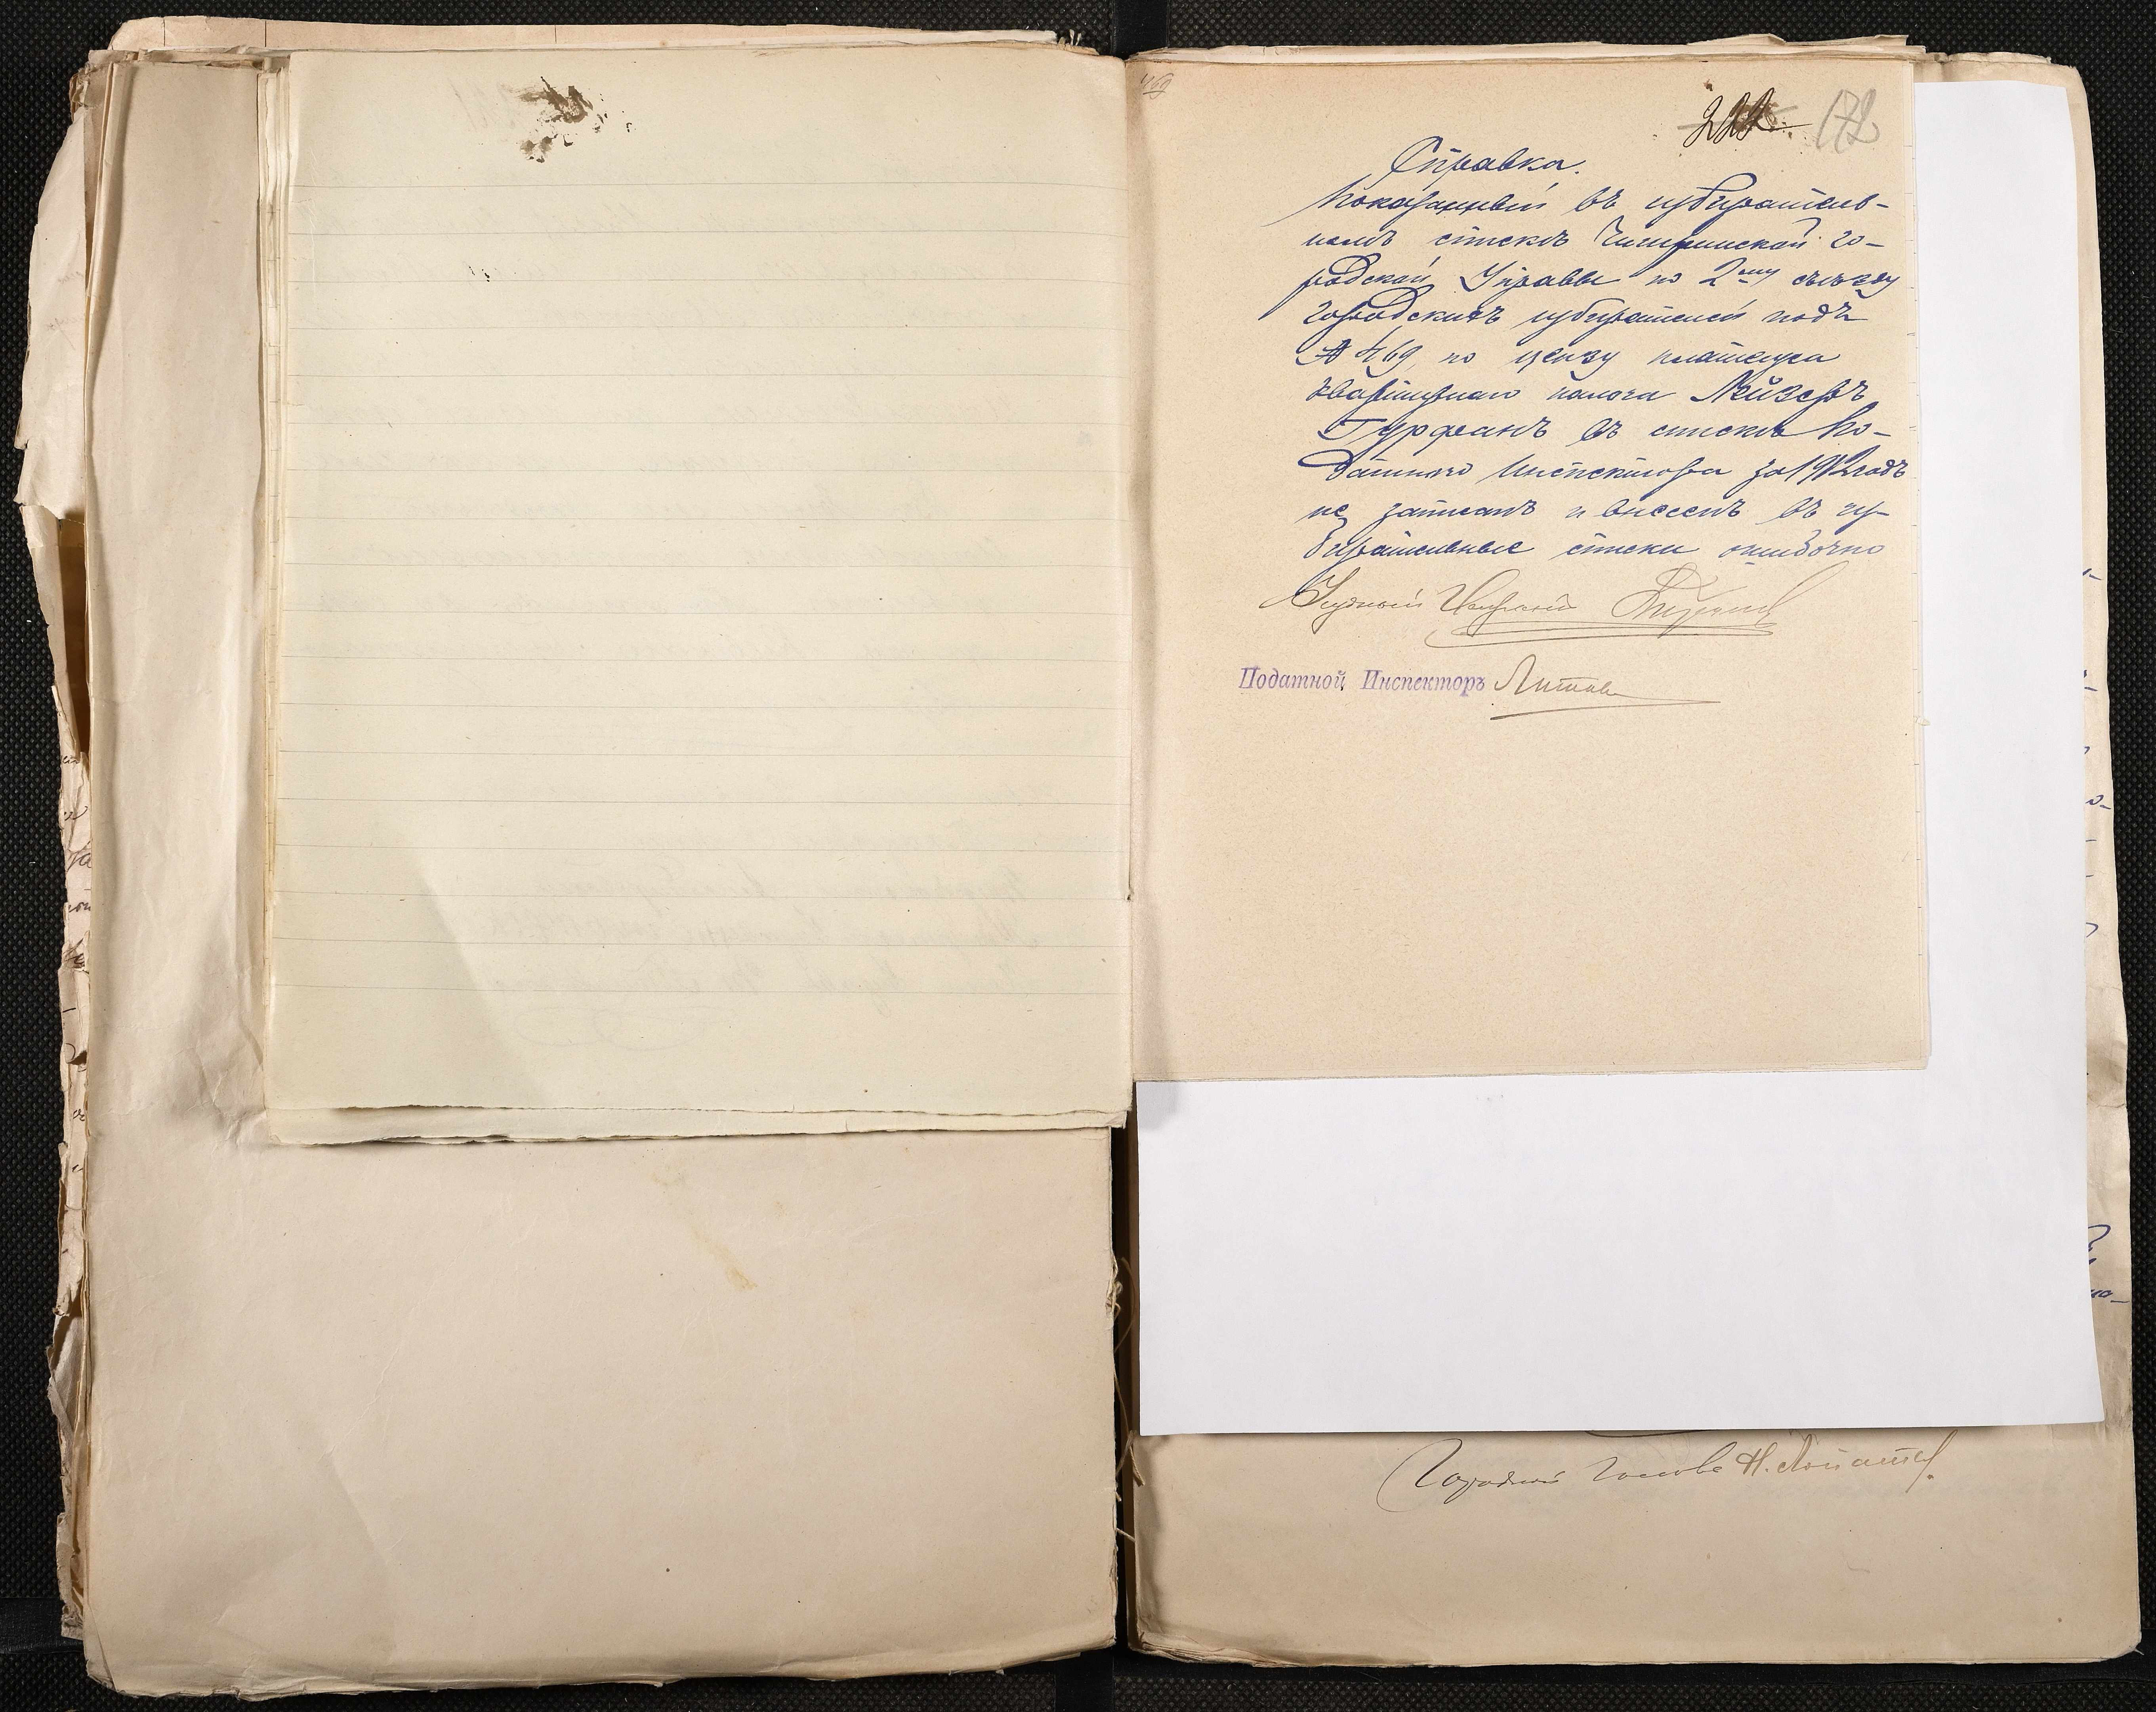 469
172
Справка.
Показанный въ избиратель-
номъ спискѣ Чигиринской го-
родской Управы по 2му съѣзду
городскихъ избирателей подъ
№ 469, по цензу плательщика
квартирнаго налога Лейзеръ
Гурфанъ въ списки По-
датного Инспектора за 1912 годъ
не записанъ и внесенъ въ из-
бирательные списки ошибочно
Уѣздный
Податной Инспекторъ
Городской Голова Н. Лопат